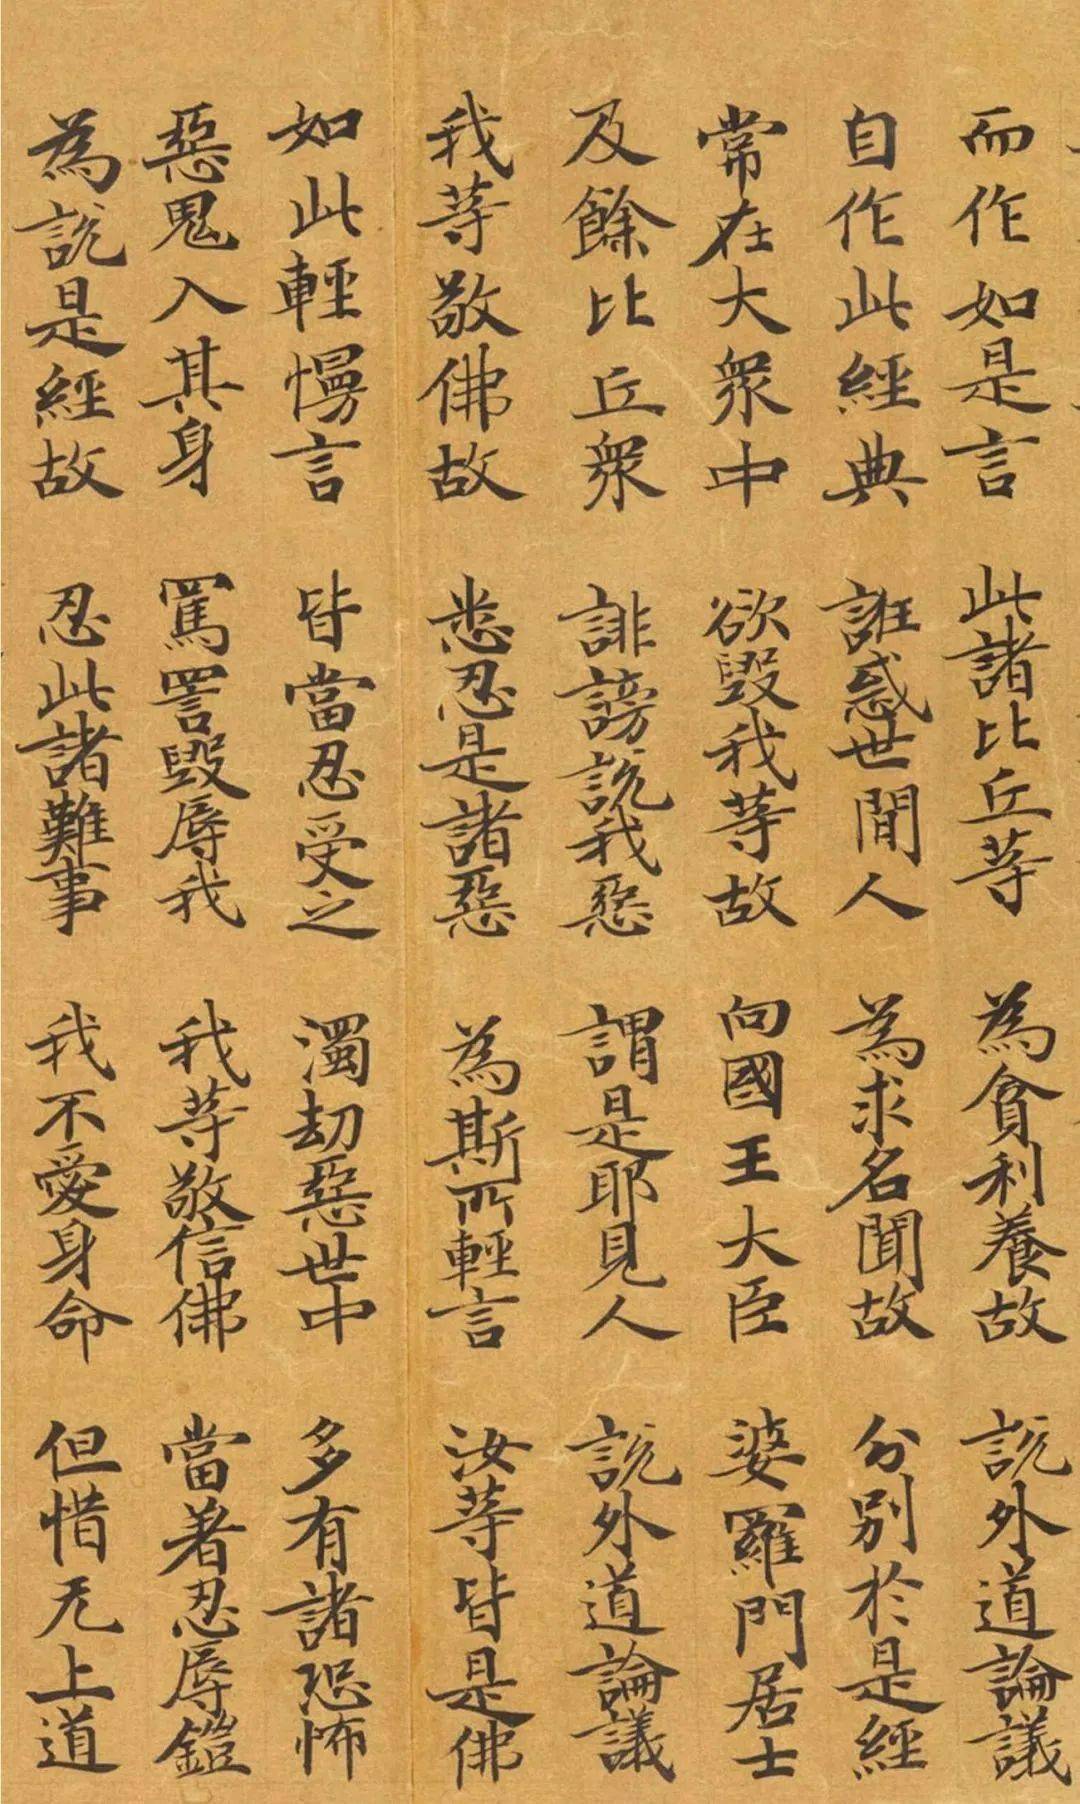 而作如是言 此諸比丘等 為貪利養故 說外道論議
自作此經典 誑惑世間人 為求名聞故 分別於是經
常在大衆中 欲毀我等故 向國王大臣 婆羅門居士
及餘比丘衆 誹謗說我惡 謂是耶見人 說外道論議
我等敬佛故 悉忍是諸惡 為斯所輕言 汝等皆是佛
如此輕慢言 皆當忍受之 濁劫惡世中 多有諸恐怖
惡鬼入其身 罵詈毀辱我 我等敬信佛 當著忍辱鎧
為說是經故 忍此諸難事 我不愛身命 但惜无上道